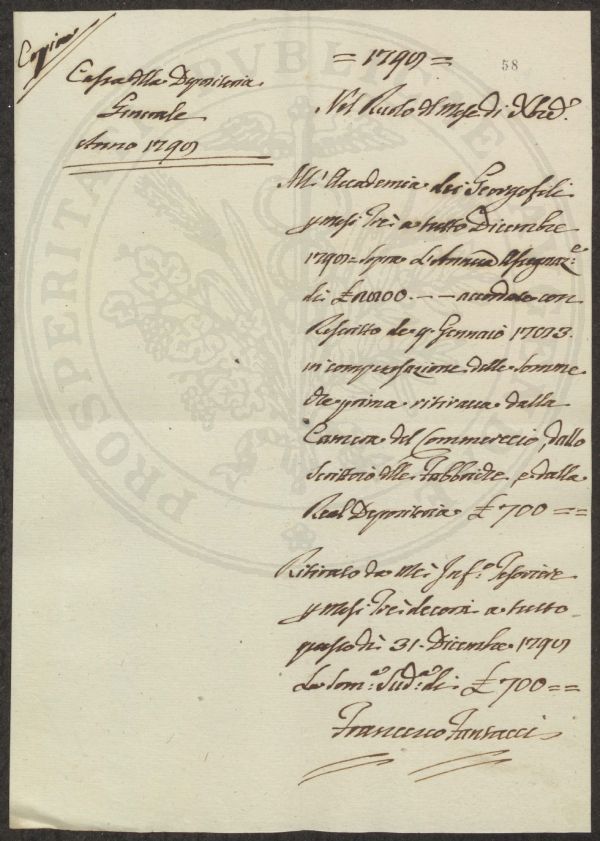 Copia
Cassa della Depositeria
Generale
Anno 1790
= 1790 =
58
Nel Ruolo del Mese di Xbre
All' Accademia dei Georgofili
p mesi Tre a tutto Dicembre
1790 sopra l'Annua Assegnaz.e
di £ 2800. - - accordate con
Rescritto de 9. Gennaio 1783.
in compensazione delle somme
che prima ritirava dalla
Camera del Commercio, dallo
Scrittoio delle Fabbriche, e dalla
Real Depositeria £ 700 ==
Ritirato da Me Inf.o Tesoriere
p mesi Tre decorsi a tutto
questo dì 31. Dicembre 1790
La Som.a Sud.a di £ 700 ==
Francesco
PROSPERITATI PVBLICAE